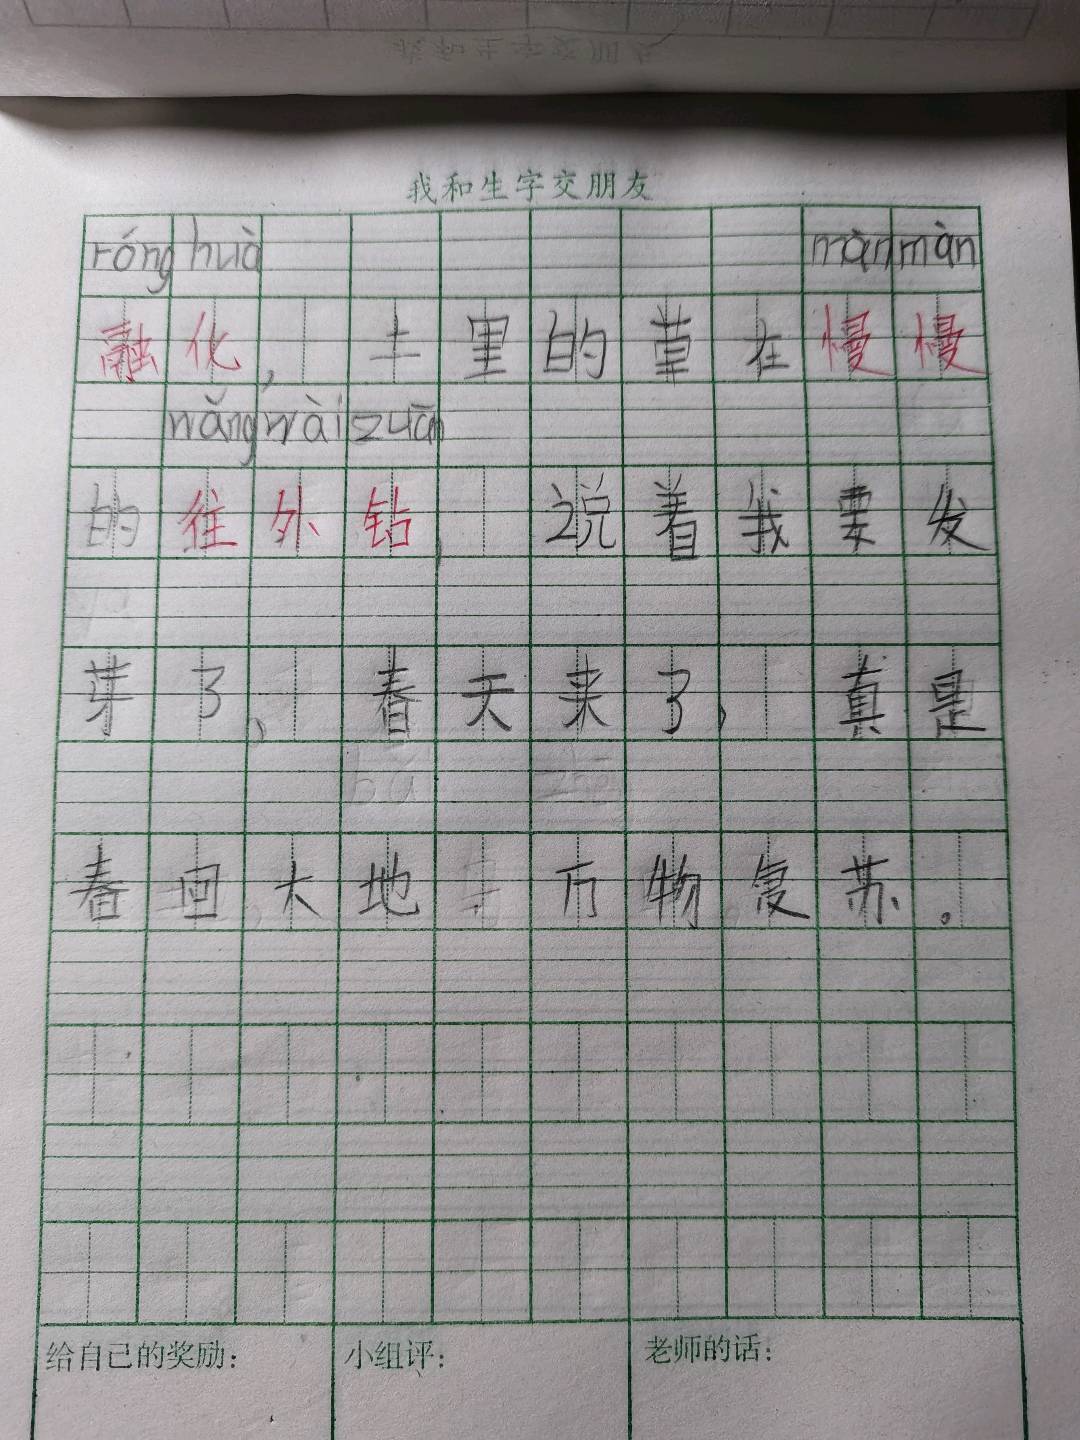 我和生字交朋友
róng huà màn màn
融化，土里的草在慢慢
wǎng wài zuān
的往外钻，说着我要发
芽了，春天来了，真是
春回大地 万物复苏。
给自己的奖励： 小组评： 老师的话：